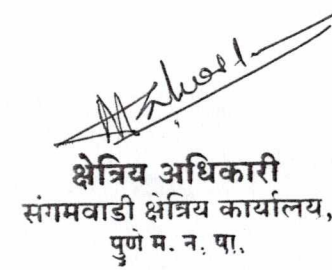 क्षेत्रिय अधिकारी
संगमवाडी क्षेत्रिय कार्यालय,
पुणे म. न. पा.